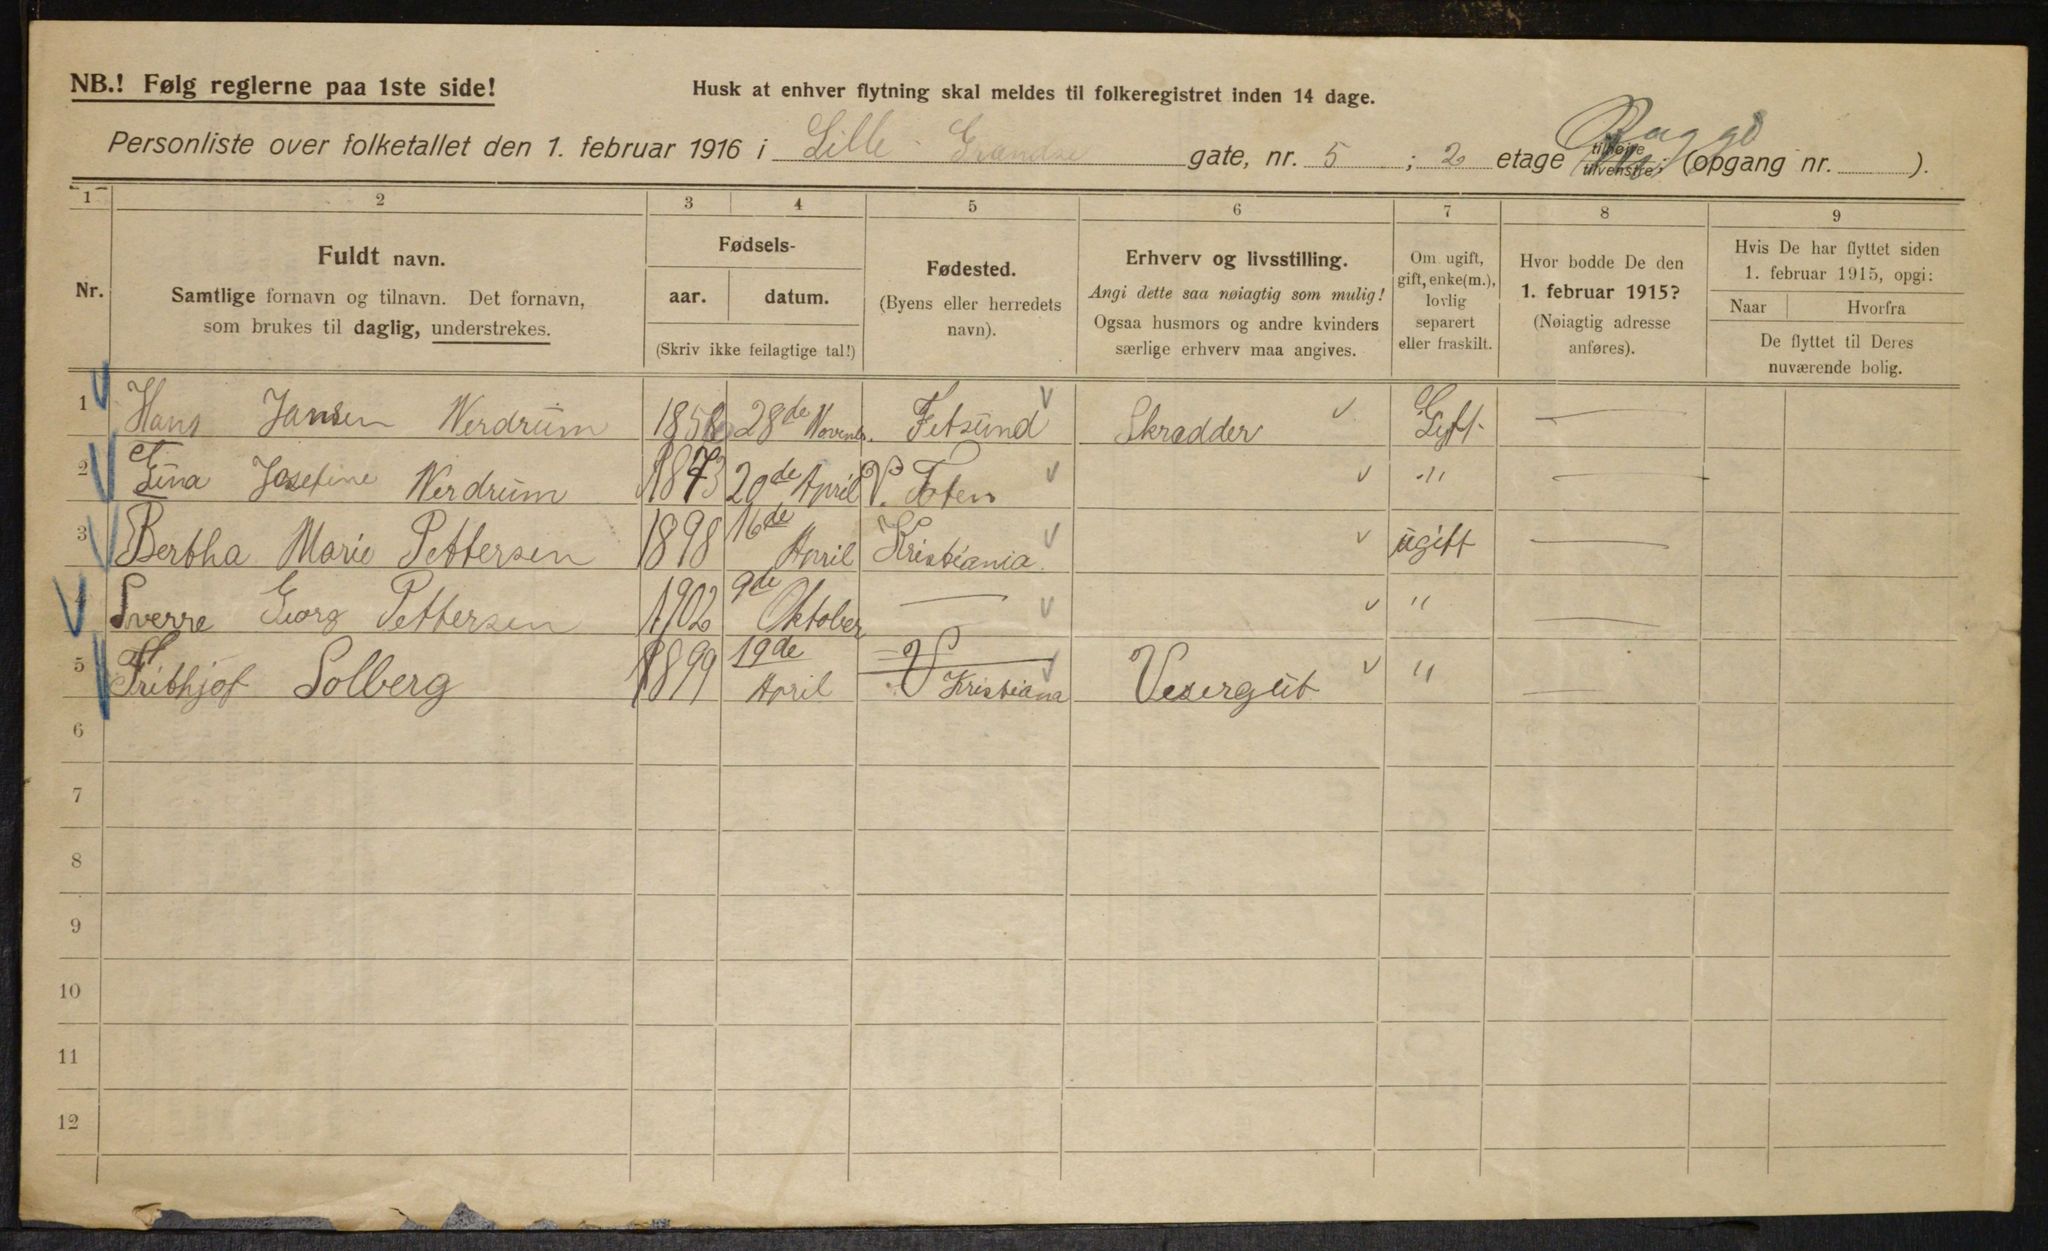 NB.! Følg reglerne paa 1ste side!
Husk at enhver flytning skal meldes til folkeregistret inden 14 dage.
Personliste over folketallet den 1. februar 1916 i Lille Grændse gate, nr. 5 ; 2 etage tilhøire tilvenstre; (opgang nr. ).
1 2 3 4 5 6 7 8 9
Nr.
Fuldt navn.
Samtlige fornavn og tilnavn. Det fornavn,
som brukes til daglig, understrekes.
Fødsels-
aar. datum.
(Skriv ikke feilagtige tal!)
Fødested.
(Byens eller herredets
navn).
Erhverv og livsstilling.
Angi dette saa nøiagtig som mulig!
Ogsaa husmors og andre kvinders
særlige erhverv maa angives.
Om ugift,
gift, enke(m.),
lovlig
separert
eller fraskilt.
Hvor bodde De den
1. februar 1915?
(Nøiagtig adresse
anføres).
Hvis De har flyttet siden
1. februar 1915, opgi:
Naar Hvorfra
De flyttet til Deres
nuværende bolig.
1 Hans Jansen Werdrum 28de Novenb. Fetsund Skrædder Gift —
2 Josefine Werdrum 1873 20de April V. Toten " —
3 Bertha Marie Pettersen 1898 16de April Kristiania. ugift —
4 Sverre Georg Pettersen 1902 9de Oktober — " —
5 Frithjof Solberg 1899 19de April Kristiana Visergut " —
6
7
8
9
10
11
12